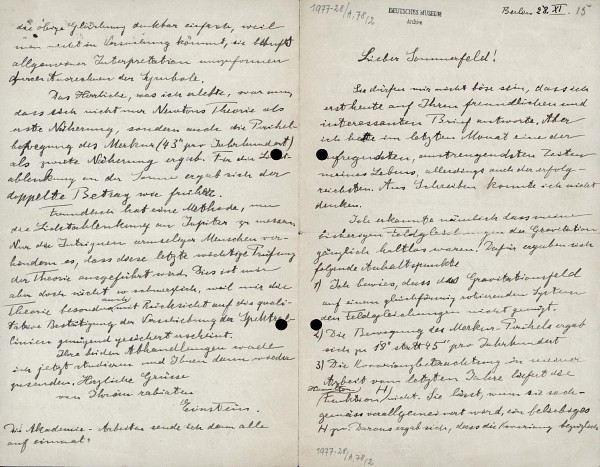 1977-28/A,78/2
DEUTSCHES MUSEUM
Archiv
Berlin 28. XI. 15
Lieber Sommerfeld!
Sie dürfen mir nicht böse sein, dass ich
erst heute auf Ihren freundlichen und
interessanten Brief antworte. Aber
ich hatte im letzten Monat eine der
aufregendsten, anstrengendsten Zeiten
meines Lebens, allerdings auch der erfolg-
reichsten. Ans Schreiben konnte ich nicht
denken.
Ich erkannte nämlich, dass meine
bisherigen Feldgleichungen der Gravitation
gänzlich haltlos waren. Dafür ergaben sich
folgende Anhaltspunkte
1) Ich bewies, dass das Gravitationsfeld
auf einem gleichförmig rotierenden System
den Feldgleichungen nicht genügt.
2) Die Bewegung des Merkur-Perihels ergab
sich zu 18" statt 45" pro Jahrhundert
3) Die Kovarianzbetrachtung in meiner
Arbeit vom letzten Jahre liefert die
Hamilton-Funktion H nicht. Sie lässt, wenn sie sach-
gemäss verallgemeinert wird, ein beliebiges
H zu. Daraus ergab sich, dass die Kovarianz bezüglich
1977-28/A,78/2
die obige Gleichung denkbar einfach, weil
man nicht in Versuchung kommt, sie behufs
allgemeiner Interpretation umzuformen
durch Ausrechnen der Symbole.
Das Herrliche, was ich erlebte, war nun,
dass sich nicht nur Newtons Theorie als
erste Näherung, sondern auch die Perihel-
bewegung des Merkur (43" pro Jahrhundert)
als zweite Näherung ergab. Für die Licht-
ablenkung an der Sonne ergab sich der
doppelte Betrag wie früher.
Freundlich hat eine Methode, um
die Lichtablenkung an Jupiter zu messen.
Nur die Intriguen armseliger Menschen ver-
hindern es, dass diese letzte wichtige Prüfung
der Theorie ausgeführt wird. Dies ist mir
aber doch nicht so schmerzlich, weil mir die
Theorie besonders auch mit Rücksicht auf die quali-
tative Bestätigung der Verschiebung der Spektral-
linien genügend gesichert erscheint.
Ihre beiden Abhandlungen werde
ich jetzt studieren und Ihnen dann wieder
zusenden. Herzliche Grüsse
von Ihrem rabiaten
Einstein.
Die Akademie-Arbeiten sende ich dann alle
auf einmal.